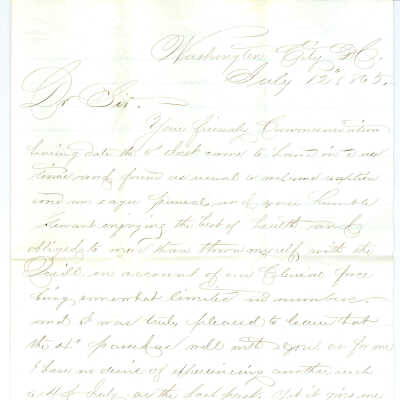 Washington City D.C.
July 12th 1865.
Dr Sir. —
Your friendly Communication
bearing date the 6th Inst came to hand in due
time and found as usual a welcome reception
and an eager perusal and your humble
Servant enjoying the best of health and
obliged to more than throw myself with the
Quill on account of our Clerical force
being somewhat limited in number.
and I was truly pleased to learn that
the 4th passed well with you as for me
I have no desire of experiencing another such
a 4th of July as the last past. Yet it gives me